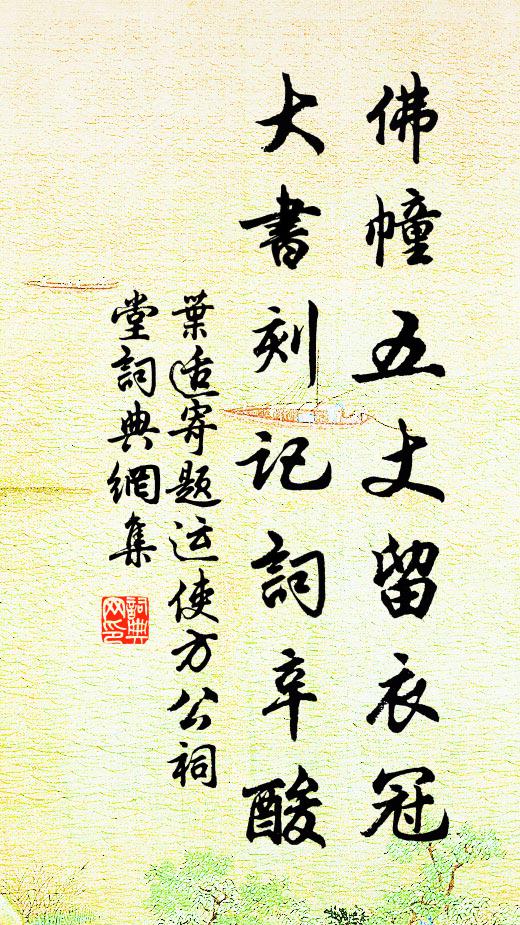 佛幢五丈留衣冠
大書刻記詞辛酸
葉适寄題运使方公祠
堂詞典網集
詞典网印